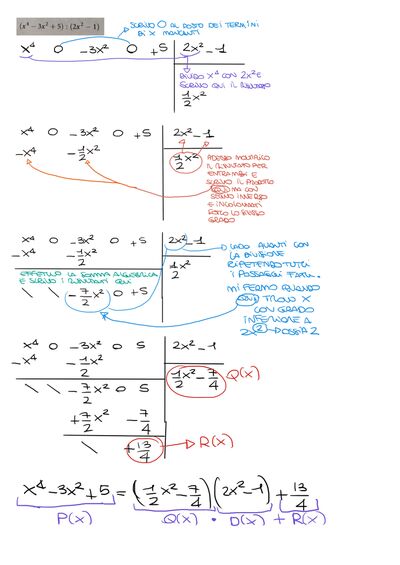 (x⁴ − 3x² + 5) : (2x² − 1)
SCRIVO 0 AL POSTO DEI TERMINI
DI X MANCANTI
x⁴ 0 −3x² 0 +5 2x² −1
DIVIDO x⁴ CON 2x² E
SCRIVO QUI IL RISULTATO
1/2 x²
x⁴ 0 −3x² 0 +5 2x² −1
−x⁴ −1/2 x² 1/2 x²
ADESSO MOLTIPLICO
IL RISULTATO PER
ENTRAMBI E
SCRIVO IL PRODOTTO
QUI MA CON
SEGNO INVERSO
E INCOLONNATI
SOTTO LO STESSO
GRADO
x⁴ 0 −3x² 0 +5 2x² −1
−x⁴ −1/2 x² 1/2 x²
EFFETTUO LA SOMMA ALGEBRICA
E SCRIVO I RISULTATI QUI
\ \ −7/2 x² 0 +5
VADO AVANTI CON
LA DIVISIONE
RIPETENDO TUTTI
I PASSAGGI FATTI.
MI FERMO QUANDO
QUI TROVO X
CON GRADO
INFERIORE A
2x² OSSIA 2
x⁴ 0 −3x² 0 5 2x² −1
−x⁴ −1/2 x² 1/2 x² −7/4 Q(x)
\ \ −7/2 x² 0 5
+7/2 x² −7/4
\ +13/4 R(x)
x⁴ −3x² +5 = (1/2 x² −7/4)(2x² −1) + 13/4
P(x) Q(x) • D(x) + R(x)